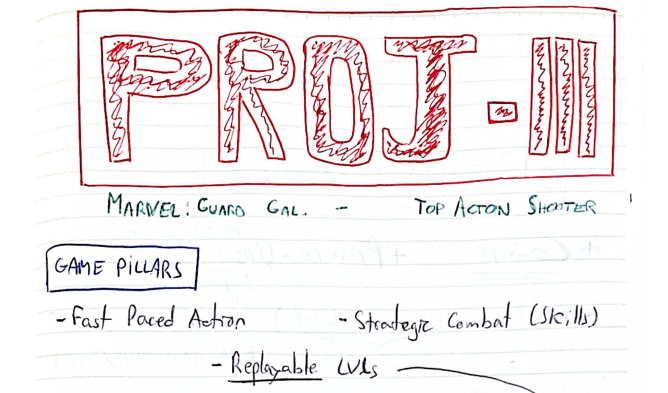 PROJ-III
MARVEL: GUARD GAL. - TOP ACTON SHOOTER
GAME PILLARS
- Fast Paced Action - Strategic Combat (Skills)
- Replayable LVLs